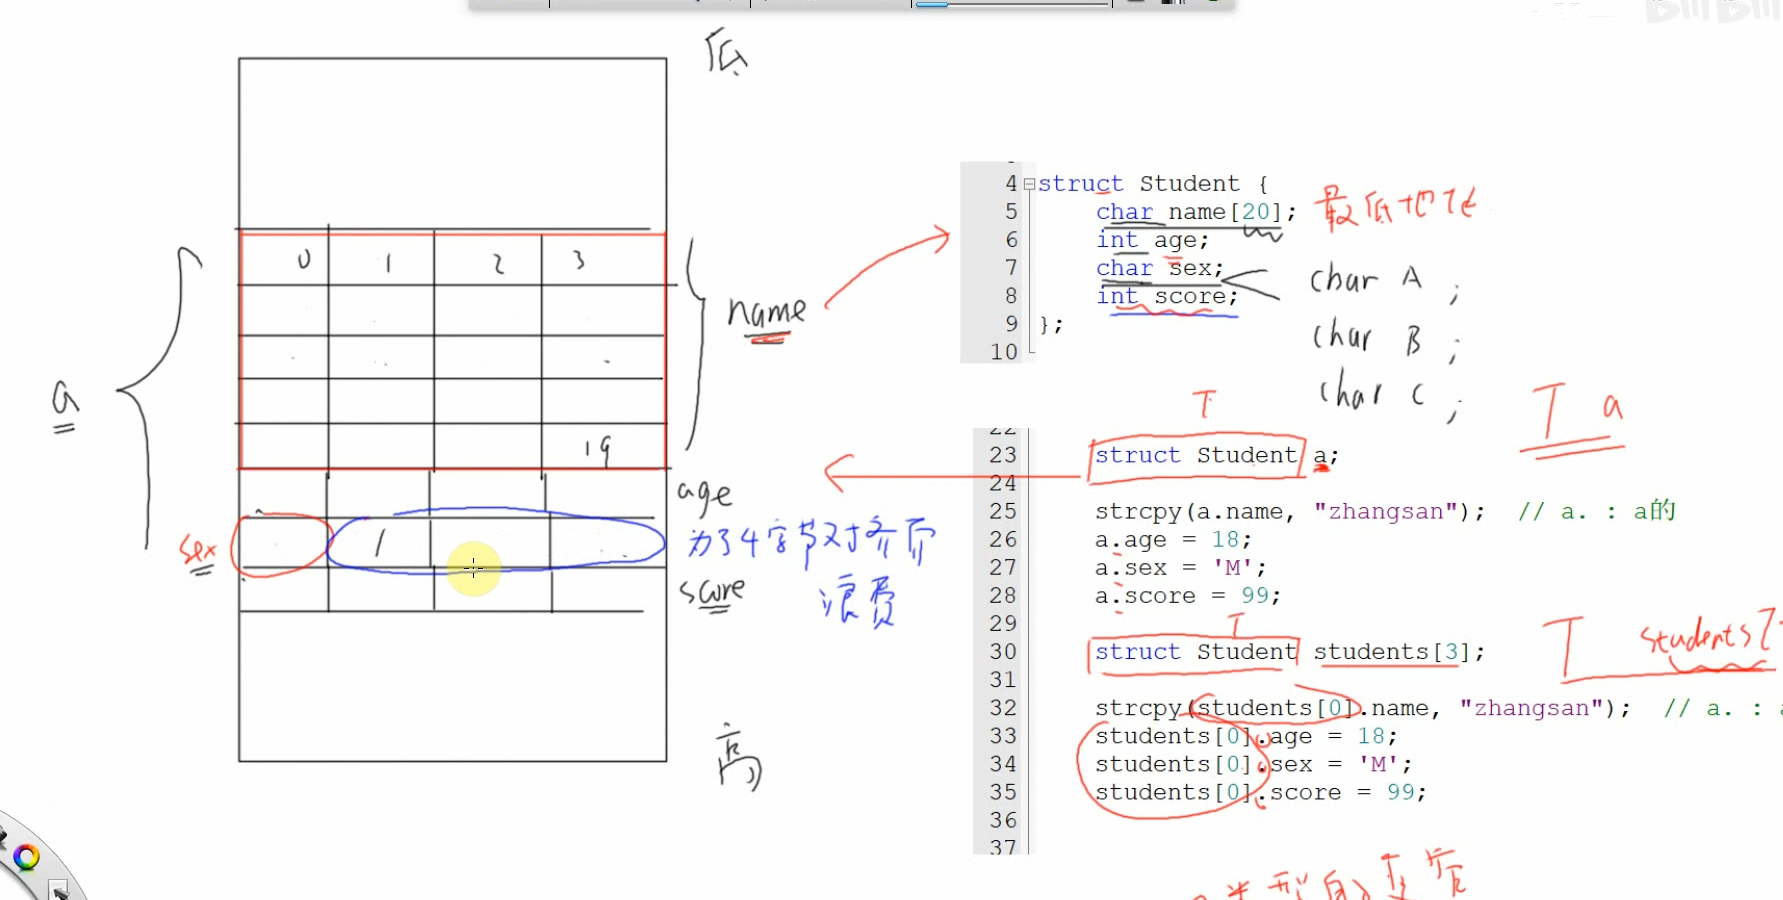 低
4 struct Student {
5 char name[20]; 最低地址
6 int age;
7 char sex;
8 int score;
9 };
10
char A ;
char B ;
char C ;
0 1 2 3
19
name
a
age
sex
1
为了4字节对齐而
浪费
score
高
T
T a
22
23 struct Student a;
24
25 strcpy(a.name, "zhangsan"); // a. : a的
26 a.age = 18;
27 a.sex = 'M';
28 a.score = 99;
29
T
30 struct Student students[3];
T students[
31
32 strcpy(students[0].name, "zhangsan"); // a. :
33 students[0].age = 18;
34 students[0].sex = 'M';
35 students[0].score = 99;
36
37
类型的变量